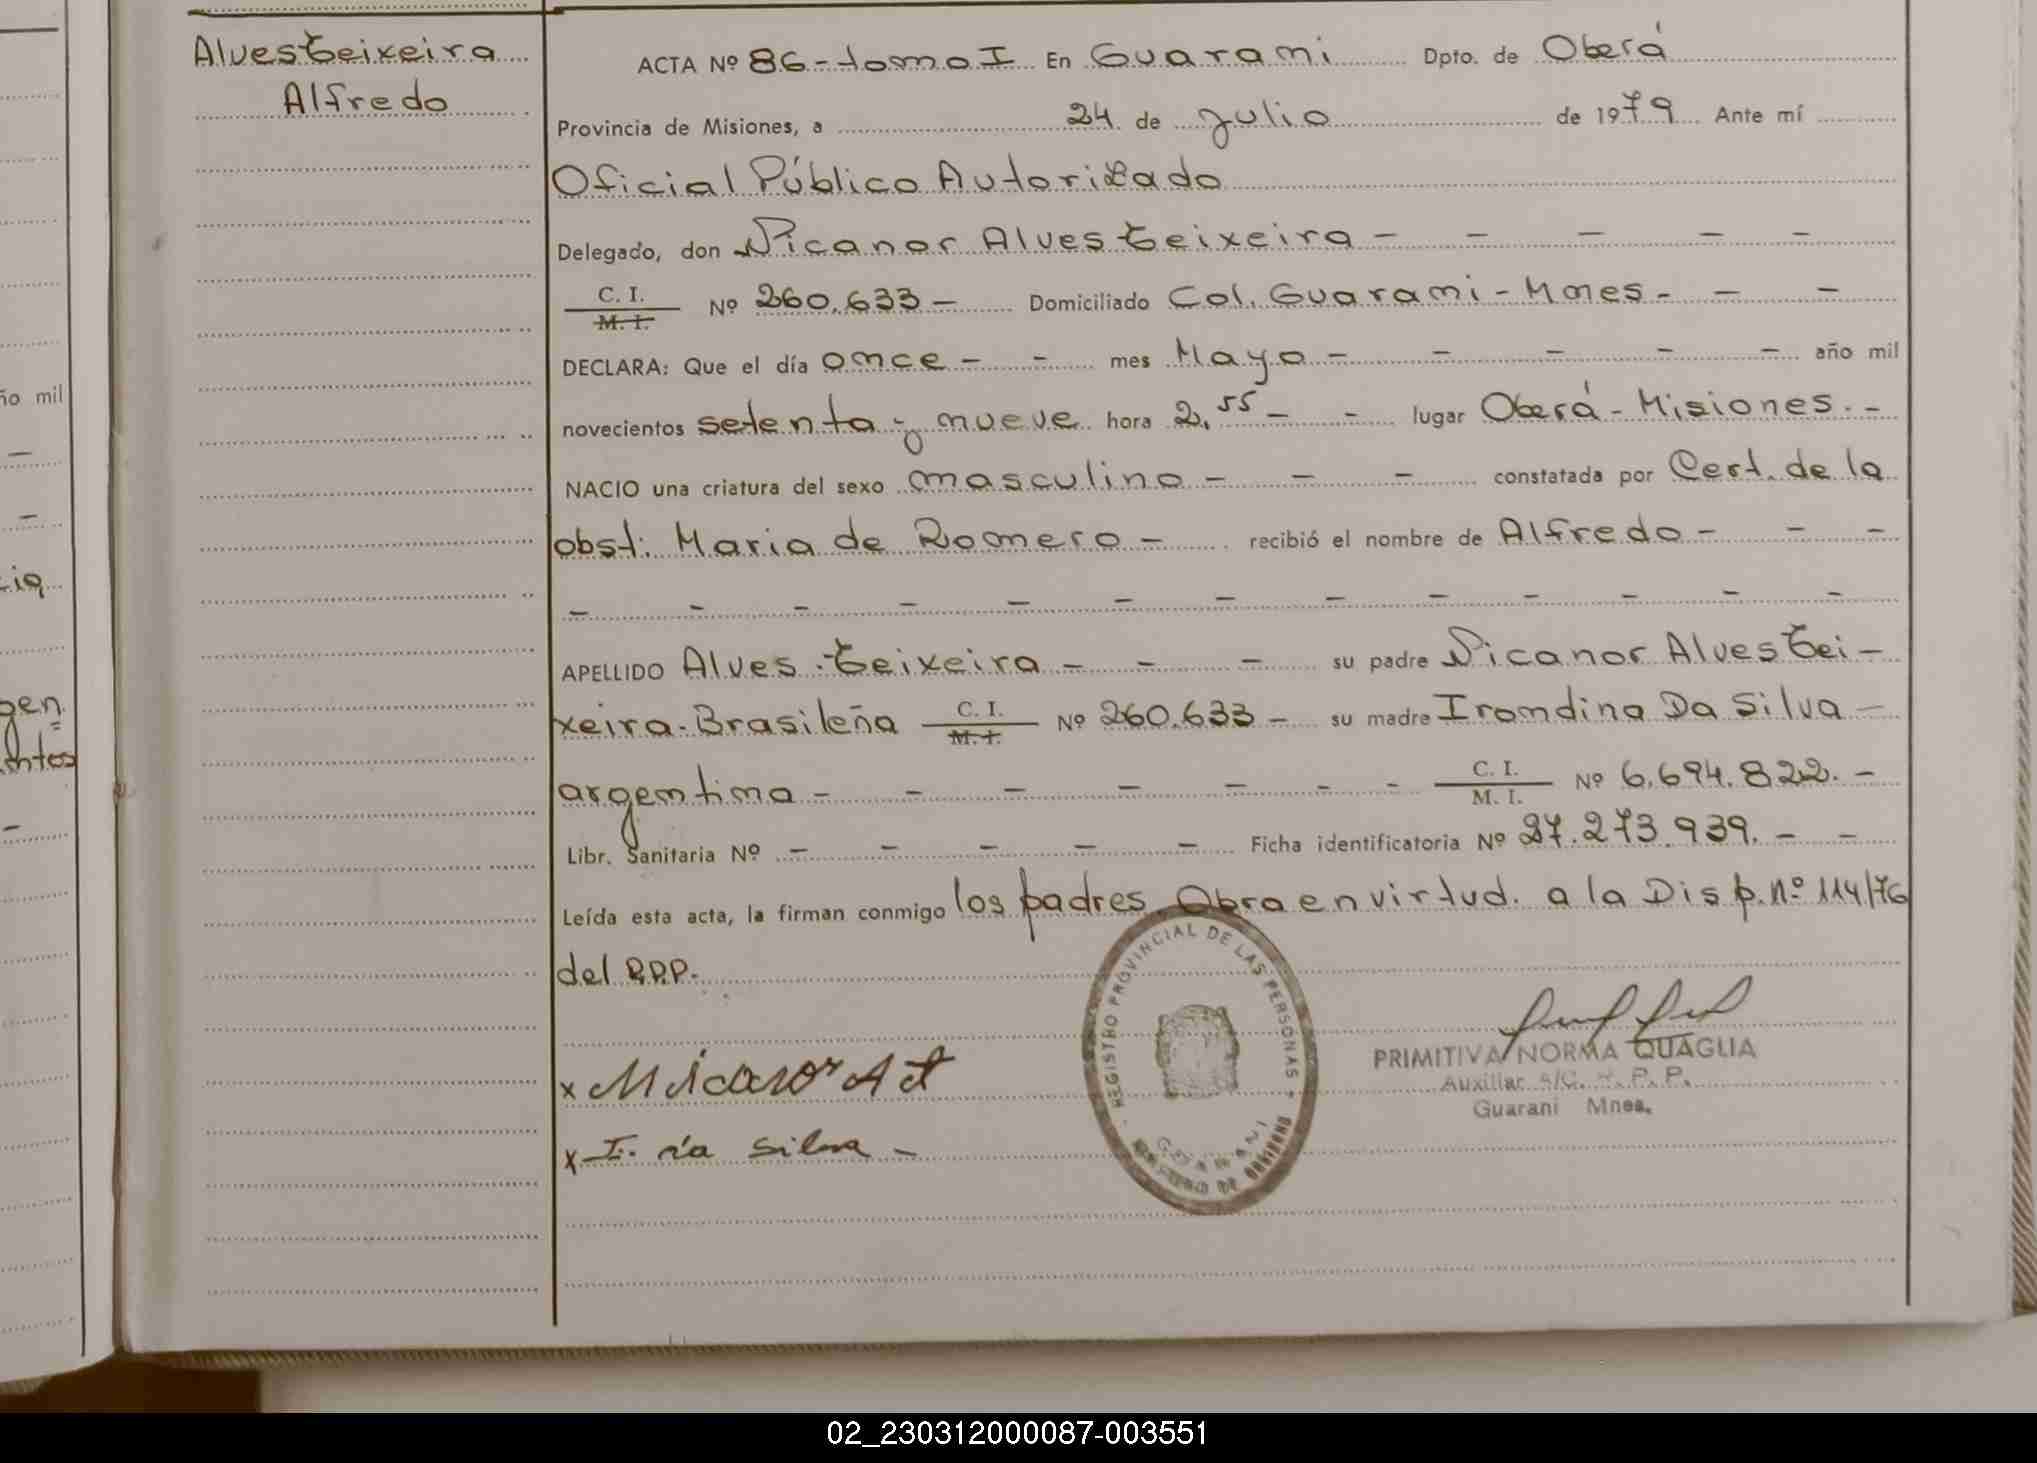 Alves Teixeira
Alfredo
ACTA Nº 86 - tomo I En Guarani Dpto. de Oberá
Provincia de Misiones, a 24 de Julio de 1979 Ante mí
Oficial Público Autorizado
Delegado, don Nicanor Alves Teixeira - - - - -
C. I.
M. I. Nº 260.633 - Domiciliado Col. Guarani - Mnes - - -
DECLARA: Que el día once - - mes Mayo - - - - - año mil
novecientos setenta y nueve hora 2,55 - - lugar Oberá - Misiones. -
NACIO una criatura del sexo masculino - - - constatada por Cert. de la
obst. Maria de Romero - recibió el nombre de Alfredo - - -
- - - - - - - - - - - - -
APELLIDO Alves Teixeira - - - su padre Nicanor Alves Tei-
xeira - Brasileña C. I.
M. I. Nº 260.633 - su madre Irondina Da Silva -
argentina - - - - - - - C. I.
M. I. Nº 6.694.822. -
Libr. Sanitaria Nº - - - - - Ficha identificatoria Nº 27.273.939. - -
Leída esta acta, la firman conmigo los padres. Obra en virtud. a la Disp. nº 114/76
del R.P.P.
REGISTRO PROVINCIAL DE LAS PERSONAS
GUARANI
x Nicanor A T
x I. da Silva -
PRIMITIVA NORMA QUAGLIA
Auxiliar A/C. R. P. P.
Guarani Mnes.
ño mil
gen
ntos
02_230312000087-003551